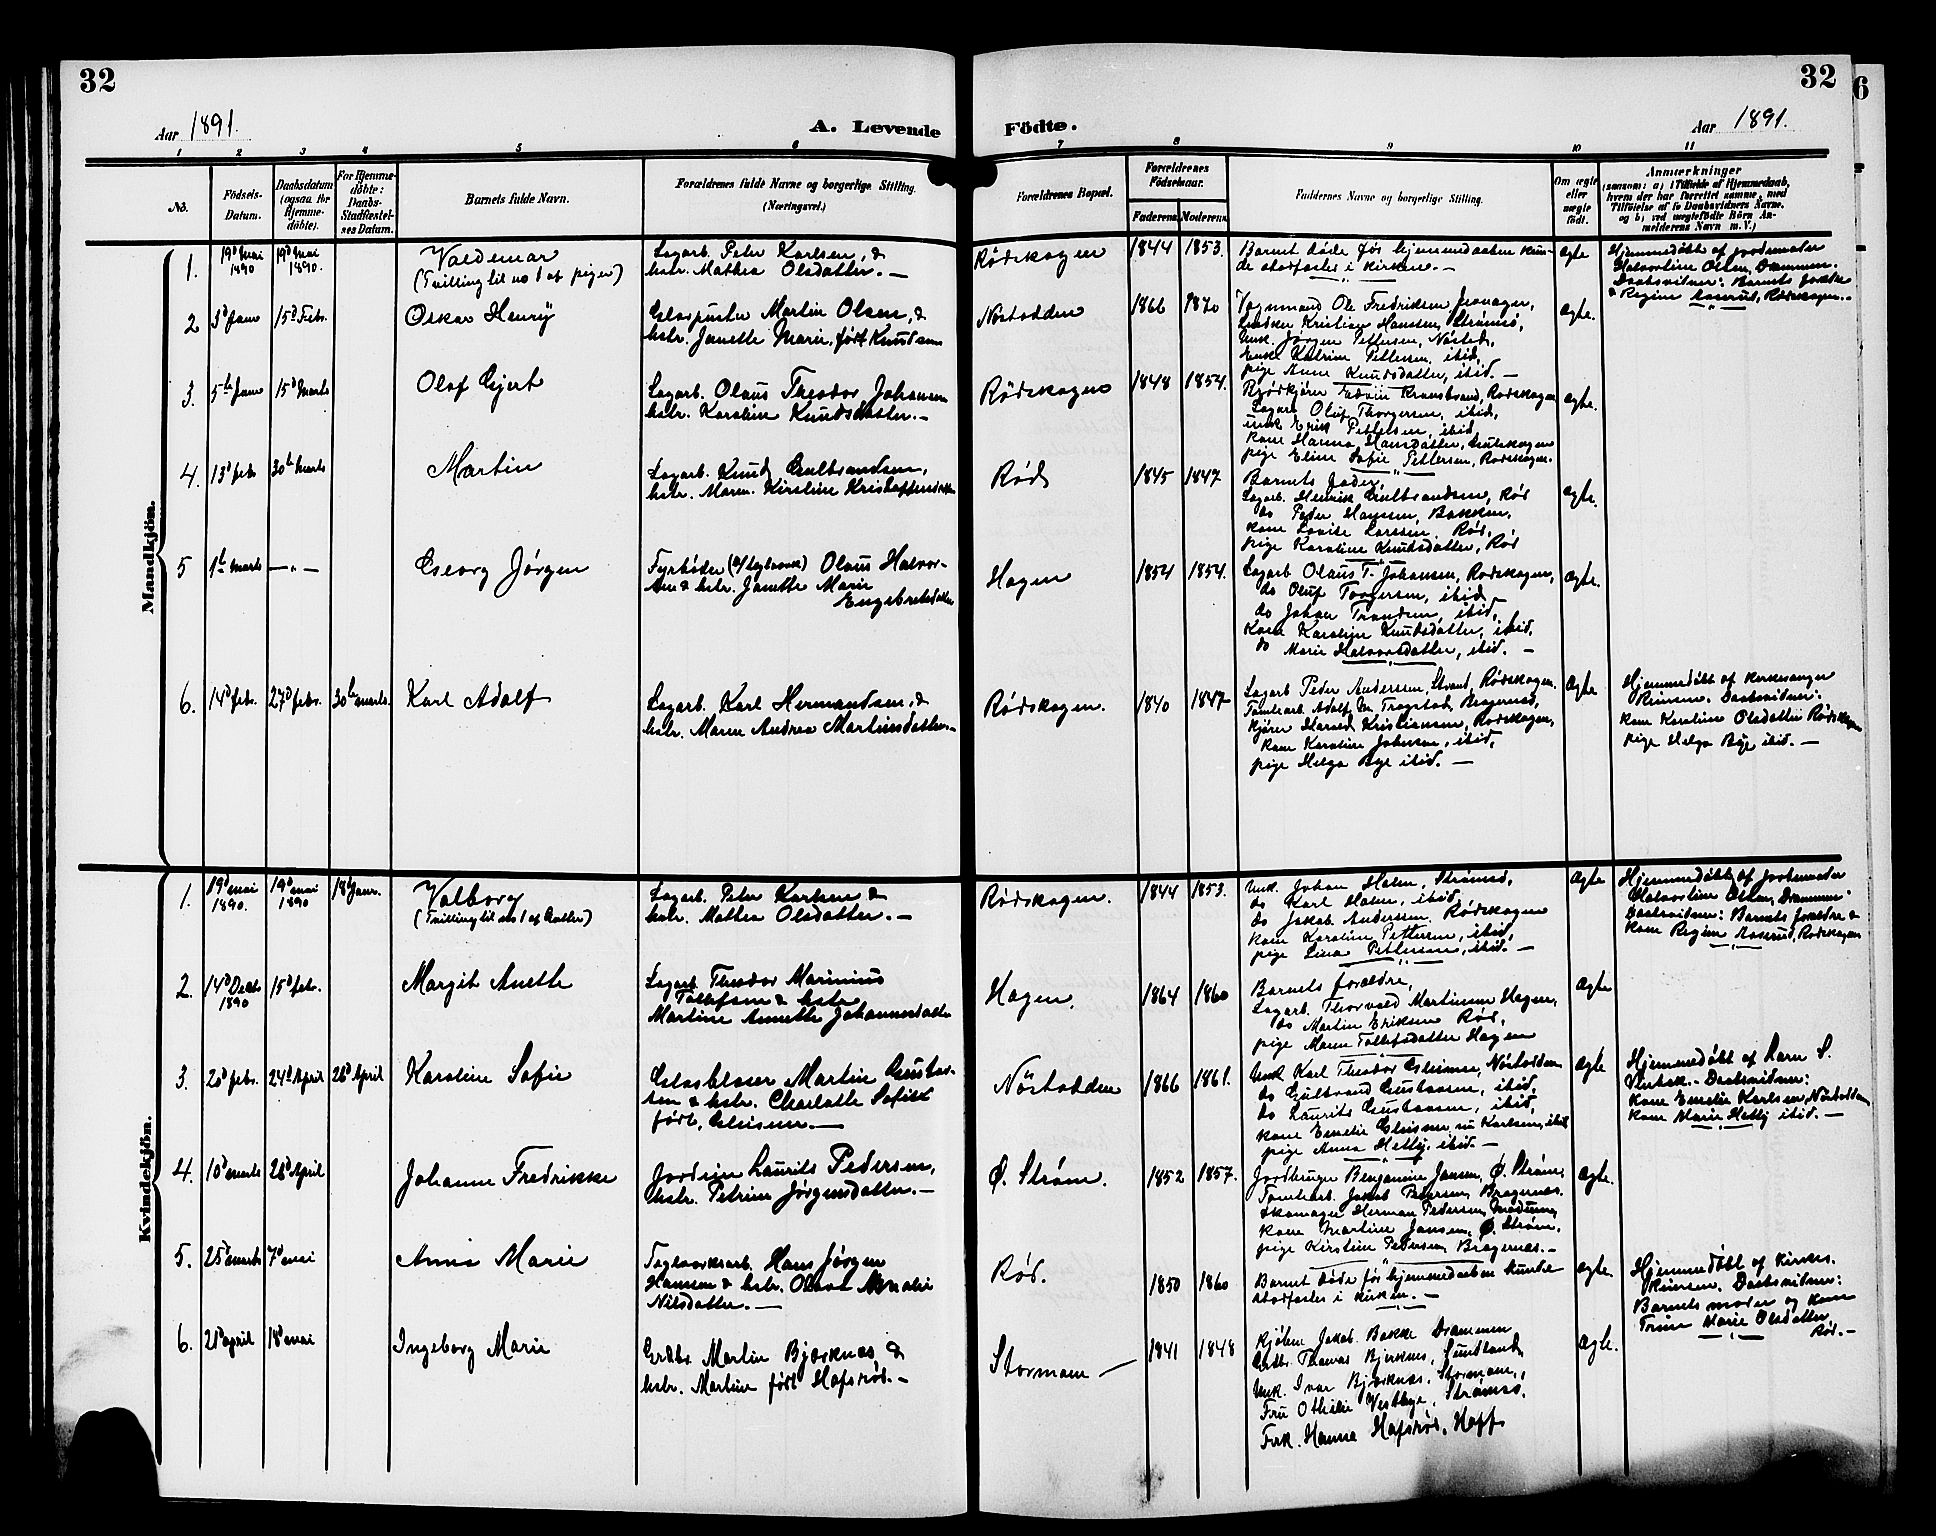 32
32
6
Aar 1891.
A. Levende Födte.
Aar 1891.
1 2 3 4 5 6 7 8 9 10 11
No.
Födsels-Datum.
Daabsdatum (ogsaa for Hjemme-döbte).
For Hjemme-döbte: Daabs-Stadfæstel-ses Datum.
Barnets fulde Navn.
Forældrenes fulde Navne og borgerlige Stilling.
(Næringsvei.)
Forældrenes Bopæl.
Forældrenes Födselsaar.
Faderens Moderens
Faddernes Navne og borgerlige Stilling.
Om ægte eller uægte födt.
Anmærkninger
(saasom: a) i Tilfælde af Hjemmedaab,
hvem der har forrettet samme, med
Tilföielse af to Daabsvidners Navne,
og b) ved uægtefödte Börn An-
melderens Navn m. V.)
Mandkjön.
1.
19d Mai 1890
19d Mai 1890.
Valdemar
(Tvilling til no 1 af piger)
Lagarb. Peter Karlsen, &
hstr. Mathea Olsdatter. —
Rødskogen
1844
1853.
Barnet døde før hjemmedaaben kun-
de stadfæstes i kirken. —
ægte
Hjemmedøbt af jordemoder
Halvordine Olsen, Drammen.
Daabsvidner: Barnets forældre
& Regine Aaserud, Rødskogen. —
2
3d Janr
15d Febr.
Oskar Henry
Glaspuster Martin Olsen, &
hstr. Janette Marie, født Knudsen
Nøstodden
1866
1870
Vognmand Ole Fredriksen
Kristian Hansen, Strømsø,
Unk. Jørgen Pettersen, Nøsted,
Enke Katrine Pettersen, ibid,
pige Anne Knudsdatter, ibid. —
ægte.
3.
5te Janr
15d Marts
Olaf Gjert
Lagarb. Olaus Theodor Johansen
hstr. Karoline Knudsdatter. —
Rødskogen
1848
1854.
Edvin Rødskogen
Lagarb Oluf Thorgersen, ibid,
unk Erik Pettersen, ibid
kone Hanna Hansdatter, Gulskogen
pige Eline Sofie Pettersen, Rødskogen.
ægte.
4.
13d febr
30te Marts
Martin
Lagarb. Knud Gulbrandsen,
hstr. Maren Kirstine Kristoffersdatter
Rød
1845
1847
Barnets fader,
Lagarb. Henrik Gulbrandsen, Rød
do Peder Hansen, Bakken,
kone Lovise Larssen, Rød,
pige Karoline Knudsdatter, Rød
ægte.
5
1te Marts
— „ —
Georg Jørgen
Fyrbøder (v/Teglværk) Olaus Halvor-
sen & hstr. Janette Marie
Engebretsdatter
Hagen
1854
1854.
Lagarb Olaus T. Johansen, Rødskogen,
do Oluf Torgersen, ibid,
do Johan Trondsen, ibid,
Kone Karoline Knudsdatter, ibid,
do Marie Halvorsdatter, ibid. —
ægte.
6.
14d febr.
27d febr.
30te marts.
Karl Adolf
Lagarb. Karl Hermandsen, &
hstr. Maren Andrea Martinsdatter. —
Rødskogen.
1840
1847
Lagarb Peder Andersen, Strand, Rødskogen.
Tomtearb. Adolf M Trøgstad, Bragernæs,
kjører Harald Kristiansen, Rødskogen,
kone Karoline Johnsen, ibid,
pige Helga Bye ibid. —
ægte
Hjemmedøbt af kirkesanger
Rimsen. Daabsvidner:
kone Karoline Olsdatter Rødskogen
pige Helga Bye ibid. —
Kvindekjön.
1.
19d mai 1890.
19d mai 1890
18d Janr.
Valborg
(Tvilling til no 1 af Gutter)
Lagarb. Peter Karlsen &
hstr. Mathea Olsdatter. —
Rødskogen.
1844
1853.
Unk. Johan Holm, Strømsø,
do Karl Holm, ibid,
do Jakob Andersen, Rødskogen
kone Karoline Pettersen, ibid,
pige Lina Pettersen, ibid. —
ægte
Hjemmedøbt af jordemoder
Halvordine Olsen, Drammen
Daabsvidner: Barnets forældre &
kone Regine Aaserud, Rødskogen
2.
14d Decbr 1890
15d febr.
Margit Anette
Lagarb. Theodor Marinius
Tollefsen & hstr
Martine Annette Johannesdatter
Hagen.
1864
1860
Barnets forældre,
Lagarb. Thorvald Martinsen Hagen,
do Martin Eriksen Rød,
pige Maren Tollefsdatter Hagen
ægte
3.
20d febr.
24d April
26d April
Karoline Sofie
Glasblaser Martin Gustav-
sen & hstr. Charlotte Sofie
født,
Nøstodden
1866
1861.
Unk Karl Theodor Nøstodden
do Gulbrand Gustavsen, ibid,
do Laurits Gustavsen, ibid,
kone Emelie Karlsen, ibid
pige Anna Hetty, ibid. —
ægte
Hjemmedøbt af Karn S.
Daabsvidner:
kone Emelie Karlsen, Nøstodden
kone Marie Hetty ibid. —
4.
10d marts
26d April
Johanne Fredrikke
Jordeier Laurits Pedersen,
hstr. Petrine Jørgensdatter. —
Ø. Strøm.
1852
1857.
Jordbruger Benjamine Jansen, Ø. Strøm,
Tomtearb. Jakob Pedersen, Bragernæs,
Skomager Herman Pedersen, Modum,
kone Martine Jansen, Ø. Strøm,
pige Kirstine Pedersen, Bragernæs. —
ægte.
5.
25d marts
7d mai
Anna Marie
Teglværksarb. Hans Jørgen
Hansen & hstr.
Nilsdatter. —
Rød.
1850
1860
Barnet døde før hjemmedaaben kunde
stadfæstes i kirken. —
ægte.
Hjemmedøbt af kirkes.
Rimsen. Daabsvidner:
Barnets moder og kone
Trine Marie Olsdatter,
Rød. —
6.
21d april
18d mai
Ingeborg Marie
Grdbr. Martin Bjerknæs &
hstr. Martine født Hafsrød. —
Stormoen —
1841
1848
Kjøbm Jakob Bakke Drammen
Grdbr. Thomas Bjerknes, Sundland,
Unk. Ivar Bjerknæs, Stormoen,
Fru Othilie Strømsø,
Frk. Hanna Hafsrød, Hoff
ægte.